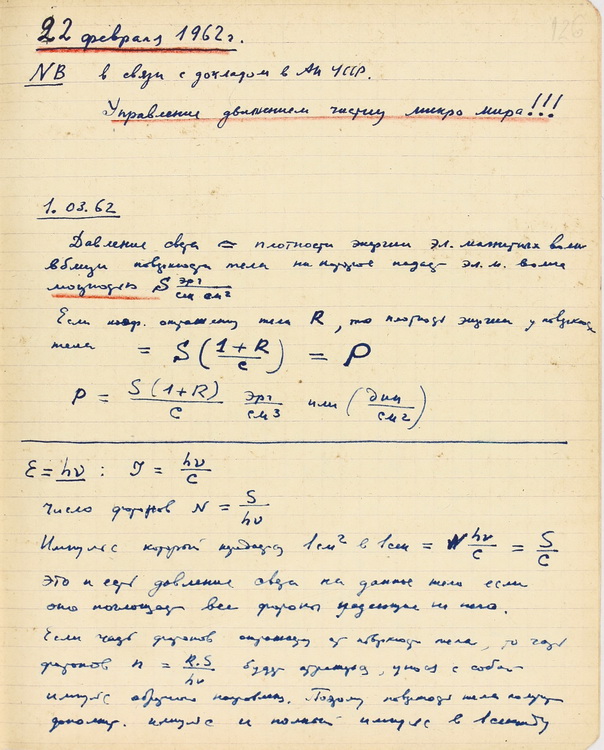 126
22 февраля 1962 г.
NB в связи с докладом в АН УССР.
Управление движением частиц микро мира!!!
1.03.62
Давление света = плотности энергии эл. магнитных волн
вблизи поверхности тела на которое падает эл. м. волна
мощностью S эрг/сек см²
Если коэф. отражения тела R, то плотность энергии у поверхности
тела = S(1+R/c) = P
P = S(1+R)/c эрг/см3 или (дин/см²)
E = hν : J = hν/c
Число фотонов N = S/hν
Импульс который передается 1см² в 1сек = N hν/c = S/c
это и есть давление света на данное тело если
оно поглощает все фотоны падающие на него.
Если часть фотонов отражается от поверхности тела, то часть
фотонов n = R.S/hν будут отражаться, унося с собой
импульс обратного направления. Поэтому поверхность тела получит
дополнит. импульс и полный импульс в 1 секунду